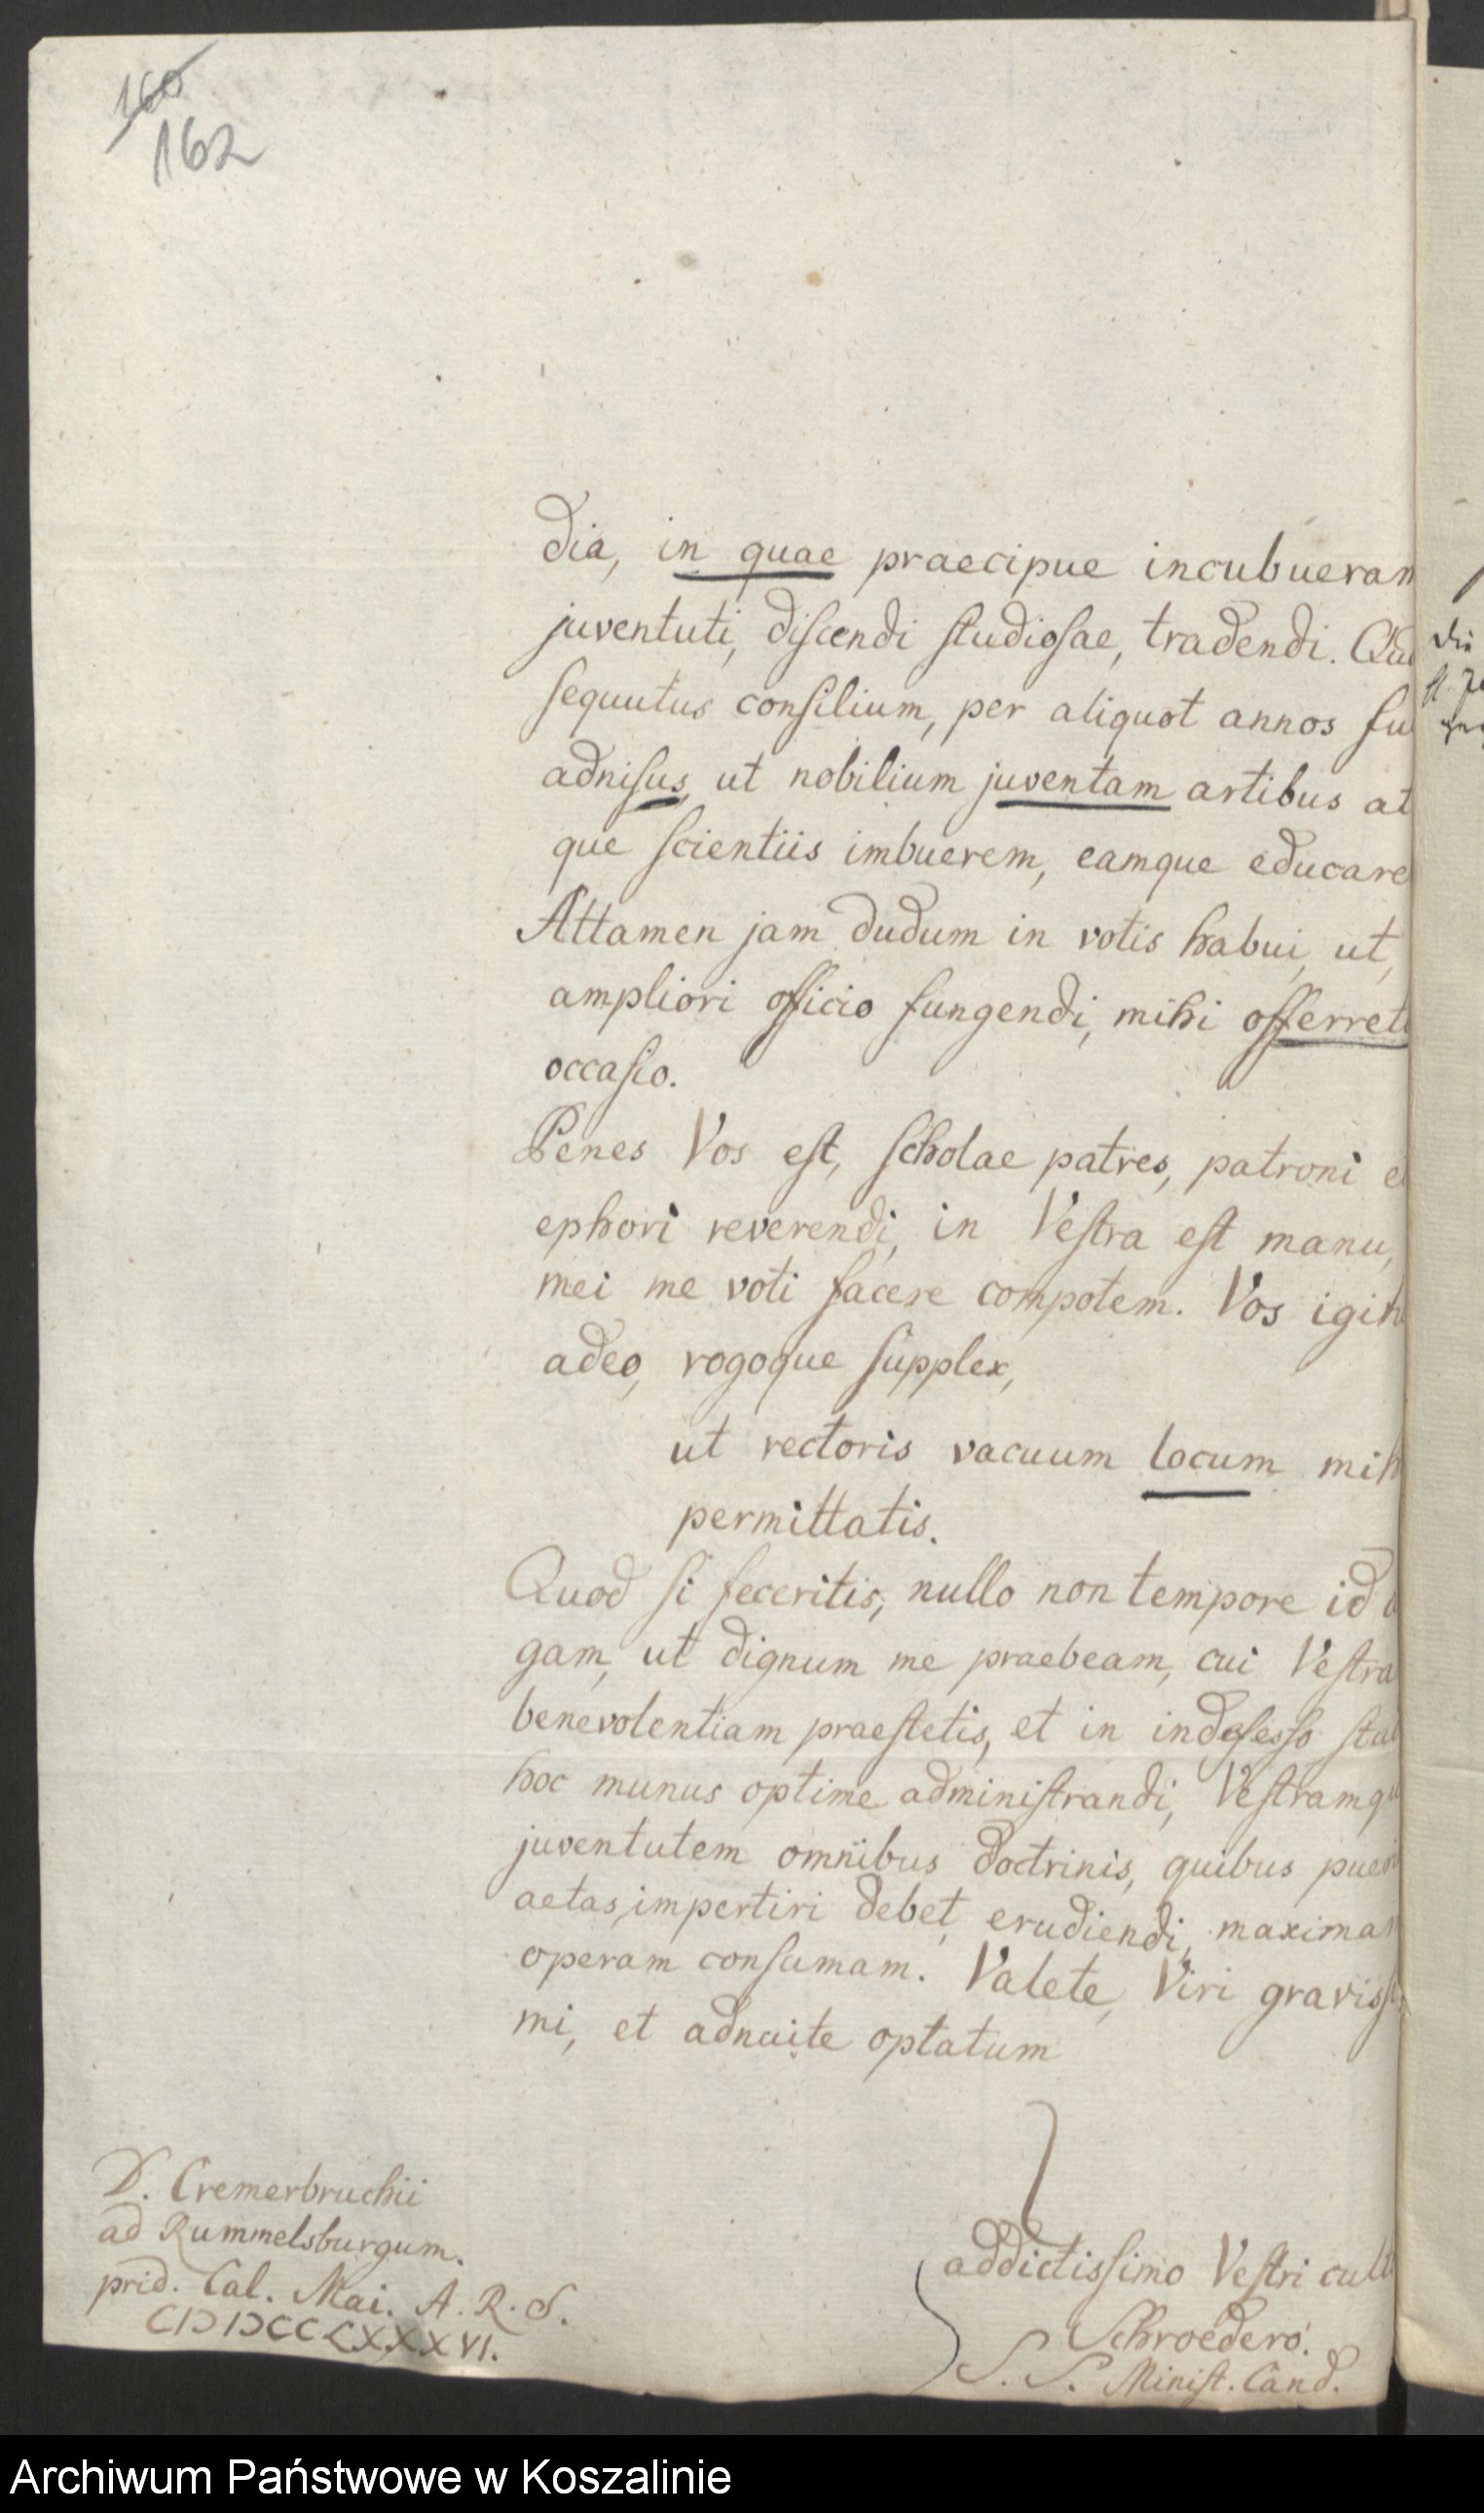 160
162
dia, in quae praecipue incubueram
juventuti, discendi studiosae, tradendi.
sequutus consilium, per aliquot annos
adnisus, ut nobilium juventam artibus at
que scientiis imbuerem, eamque educare
Attamen jam dudum in votis habui, ut,
ampliori officio fungendi, mihi offerret
occasio.
Penes Vos est, scholae patres, patroni e
ephori reverendi, in Vestra est manu,
mei me voti facere compotem. Vos igitu
adeo, rogoque supplex,
ut rectoris vacuum locum mih
permittatis.
Quod si feceritis, nullo non tempore id
gam, ut dignum me praebeam, cui Vestra
benevolentiam praestetis, et in indefesso stu
hoc munus optime administrandi, Vestramqu
juventutem omnibus doctrinis, quibus pueri
aetas, impertiri debet, erudiendi, maximam
operam consumam. Valete, Viri gravissi
mi, et adnuite optatum
D. Cremerbruchii
ad Rummelsburgum.
prid. Cal. Mai. A. R. S.
CIƆIƆCCLXXXVI.
addictissimo Vestri cult
Schroedero.
S. S. Minist. Cand.
Archiwum Państwowe w Koszalinie